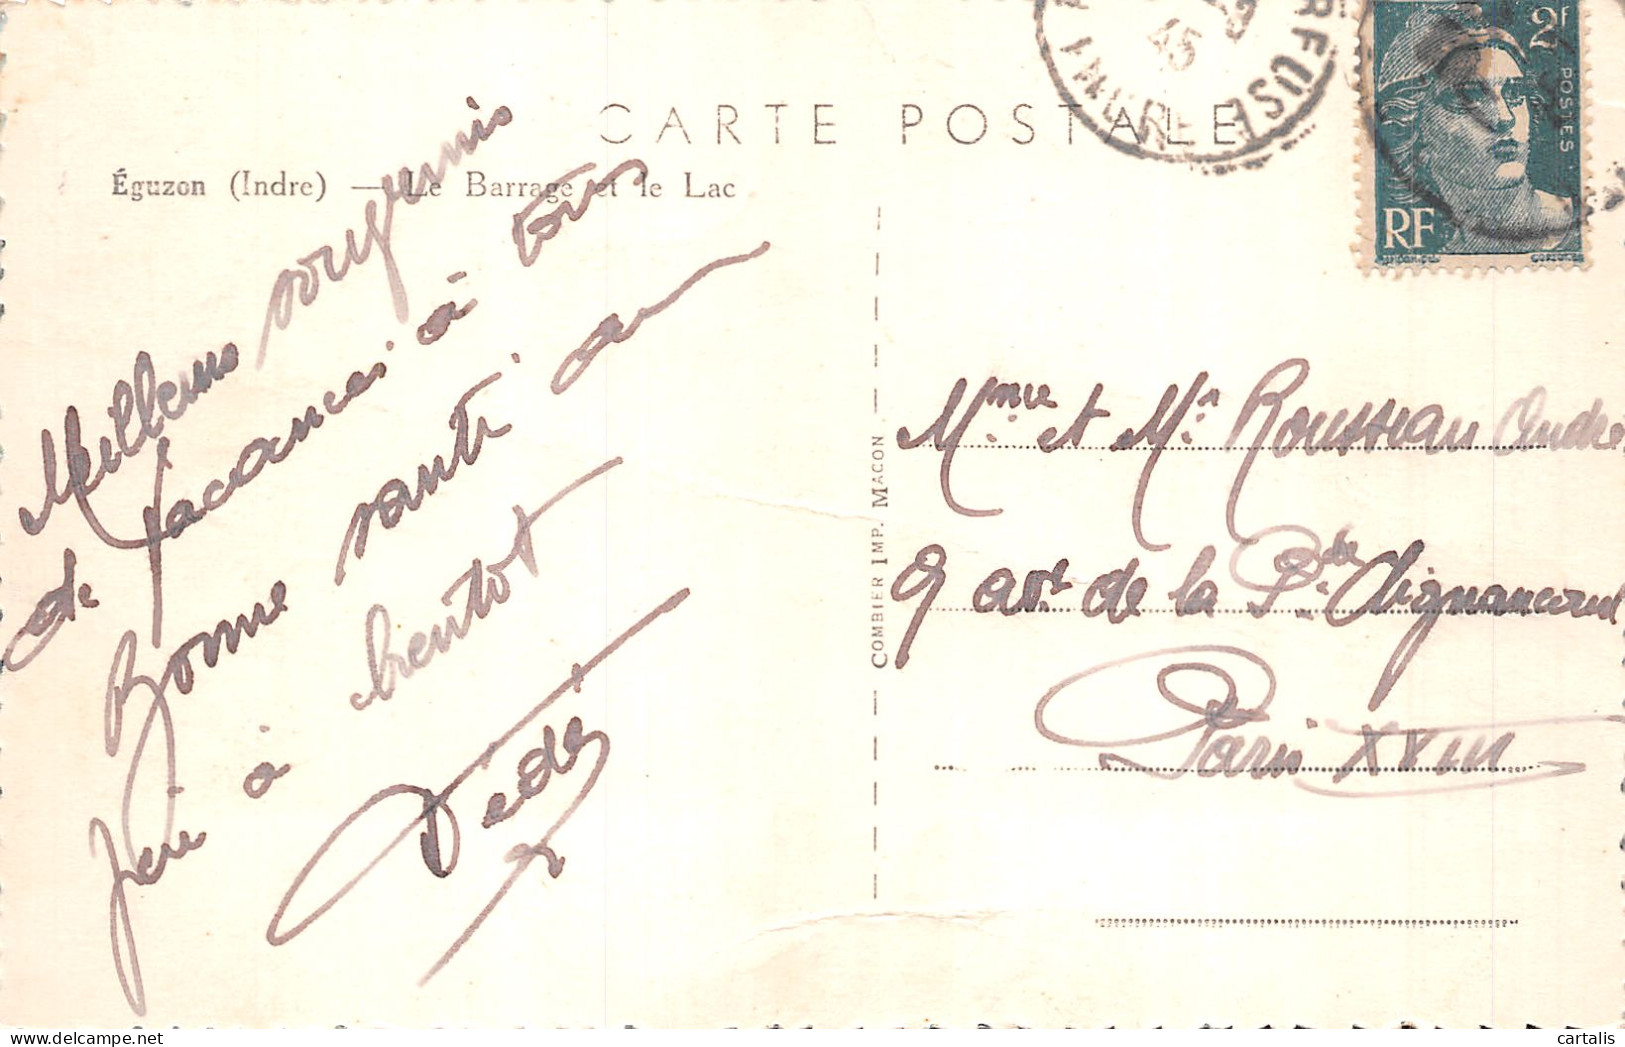 CARTE POSTALE
Éguzon (Indre) — Le Barrage et le Lac
Meilleurs souvenirs
de vacances à tous
Bonne santé au
à bientôt
Dédé
COMBIER IMP. MACON
INDRE
45
2f
POSTES
RF
GANDON
Mme et Mr Rousseau André
9 avt de la Pte de Clignancourt
Paris XVIII
cartalis